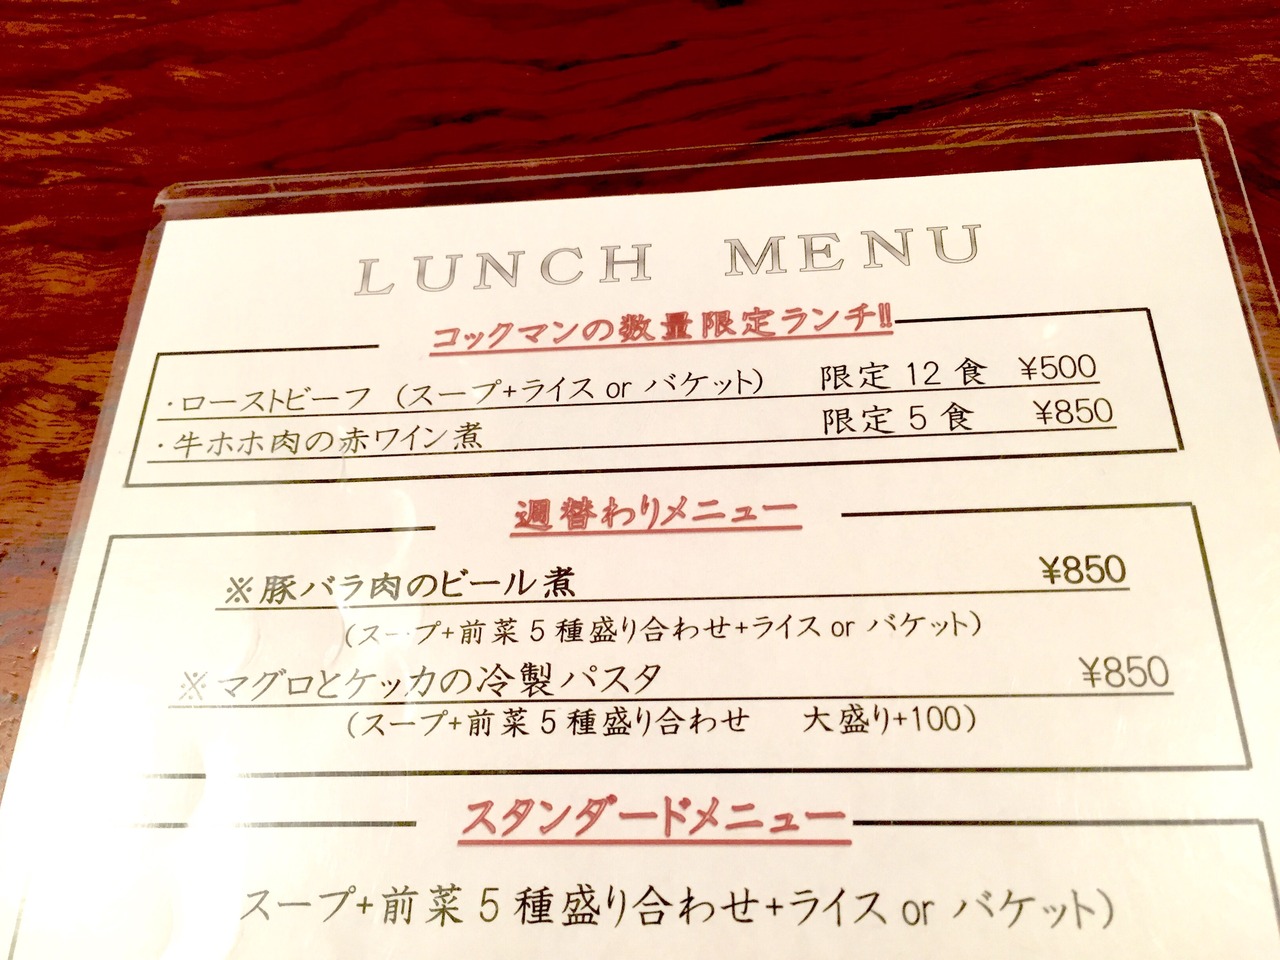 LUNCH MENU
コックマンの数量限定ランチ!!
・ローストビーフ (スープ+ライス or バケット) 限定 12 食 ¥500
・牛ホホ肉の赤ワイン煮 限定 5 食 ¥850
週替わりメニュー
※豚バラ肉のビール煮 ¥850
(スープ+前菜 5 種盛り合わせ+ライス or バケット)
※マグロとケッカの冷製パスタ ¥850
(スープ+前菜 5 種盛り合わせ 大盛り+100)
スタンダードメニュー
スープ+前菜 5 種盛り合わせ+ライス or バケット)